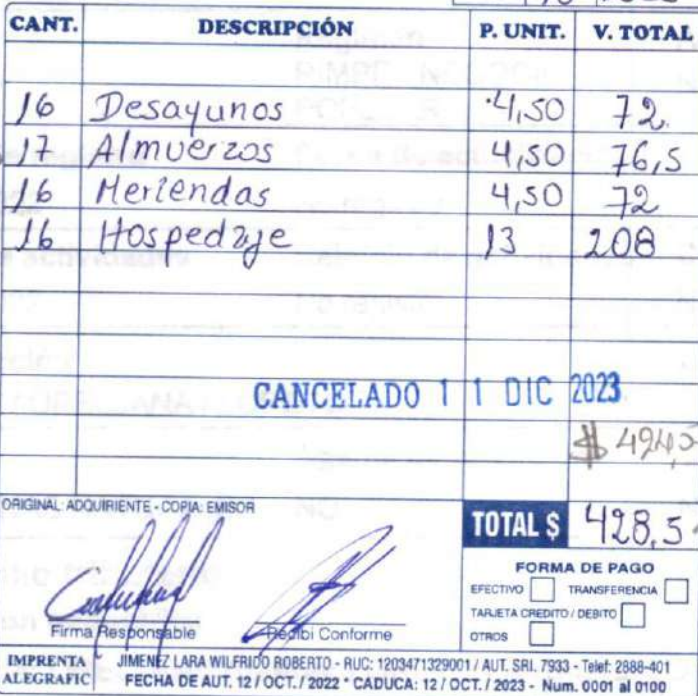 CANT. DESCRIPCIÓN P. UNIT. V. TOTAL
16 Desayunos 4,50 72
17 Almuerzos 4,50 76,5
16 Meriendas 4,50 72
16 Hospedaje 13 208
CANCELADO 11 DIC 2023
ORIGINAL: ADQUIRIENTE - COPIA: EMISOR
TOTAL $ 428,5
FORMA DE PAGO
EFECTIVO TRANSFERENCIA
TARJETA CREDITO / DEBITO
OTROS
Firma Responsable Recibi Conforme
IMPRENTA ALEGRAFIC
JIMENEZ LARA WILFRIDO ROBERTO - RUC: 1203471329001 / AUT. SRI. 7933 - Telef: 2888-401
FECHA DE AUT. 12 / OCT. / 2022 * CADUCA: 12 / OCT. / 2023 - Num. 0001 al 0100